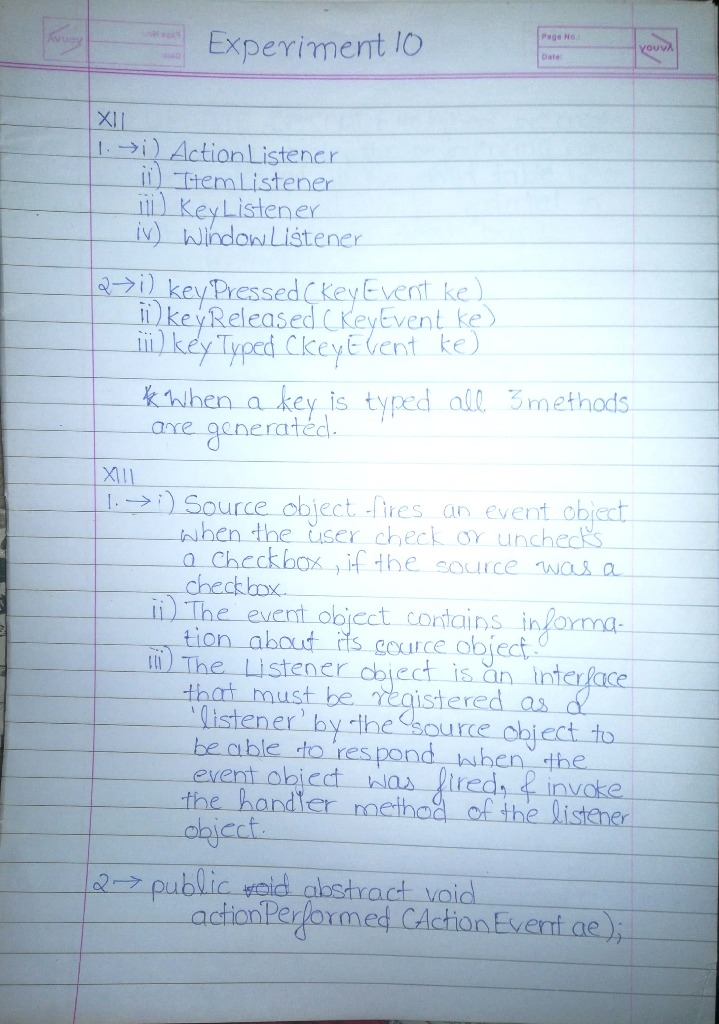 Experiment 10
Page No.:
Date:
YOUVA
XII
1. →i) ActionListener
ii) ItemListener
iii) KeyListener
iv) WindowListener
2→i) keyPressed(KeyEvent ke)
ii) keyReleased (KeyEvent ke)
iii) keyTyped (KeyEvent ke)
* When a key is typed all 3 methods
are generated.
XIII
1. →i) Source object fires an event object
when the user check or unchecks
a checkbox, if the source was a
checkbox.
ii) The event object contains informa-
tion about its source object.
iii) The Listener object is an interface
that must be registered as a
'listener' by the source object to
be able to respond when the
event object was fired, & invoke
the handler method of the listener
object.
2→ public void abstract void
actionPerformed (ActionEvent ae);